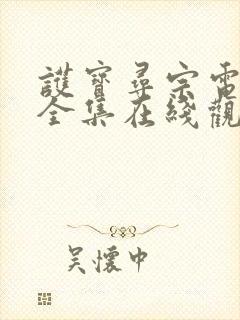 護寶尋宗電
全集在綫觀
吴懷中